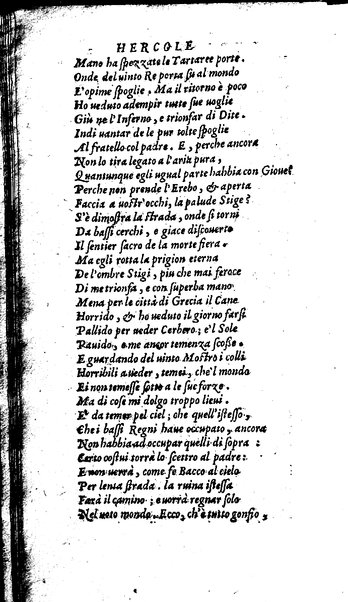 HERCOLE
Mano ha spezzate le Tartaree porte.
Onde del uinto Re porta sù al mondo
E'opime spoglie. Ma il ritorno è poco
Hò ueduto adempir tutte sue uoglie
Giù ne l'Inferno, e trionfar di Dite.
Indi uantar de le pur tolte spoglie
Al fratello col padre. E, perche ancora
Non lo tira legato a l'aria pura,
Quantunque egli ugual parte habbia con Gioue?
Perche non prende l'Erebo, & aperta
Faccia a uostr'occhi, la palude Stige?
S'è dimostra la strada, onde si torni
Da bassi cerchi, e giace discouerto
Il sentier sacro de la morte fiera.
Ma egli rotta la prigion eterna
De l'ombre Stigi, piu che mai feroce
Di me trionfa, e con superba mano
Mena per le città di Grecia il Cane
Horrido, & hò ueduto il giorno farsi
Pallido per ueder Cerbero; e'l Sole
Pauido, e me ancor temenza scosse.
E guardando del uinto Mostro i colli
Horribili a ueder, temei, che'l mondo
Ei non temesse sotto a le sue forze.
Ma di cose mi dolgo troppo lieui.
E' da temer pel ciel; che quell'istesso,
Che i bassi Regni haue occupato, ancora
Non habbia ad occupar quelli di sopra:
Certo costui torrà lo scettro al padre:
E non uerrà, come fe Bacco al cielo
Per lenta strada. la ruina istessa
Farà il camino; e uorrà regnar solo
Nel uoto mondo. Ecco, ch'è tutto gonfio,